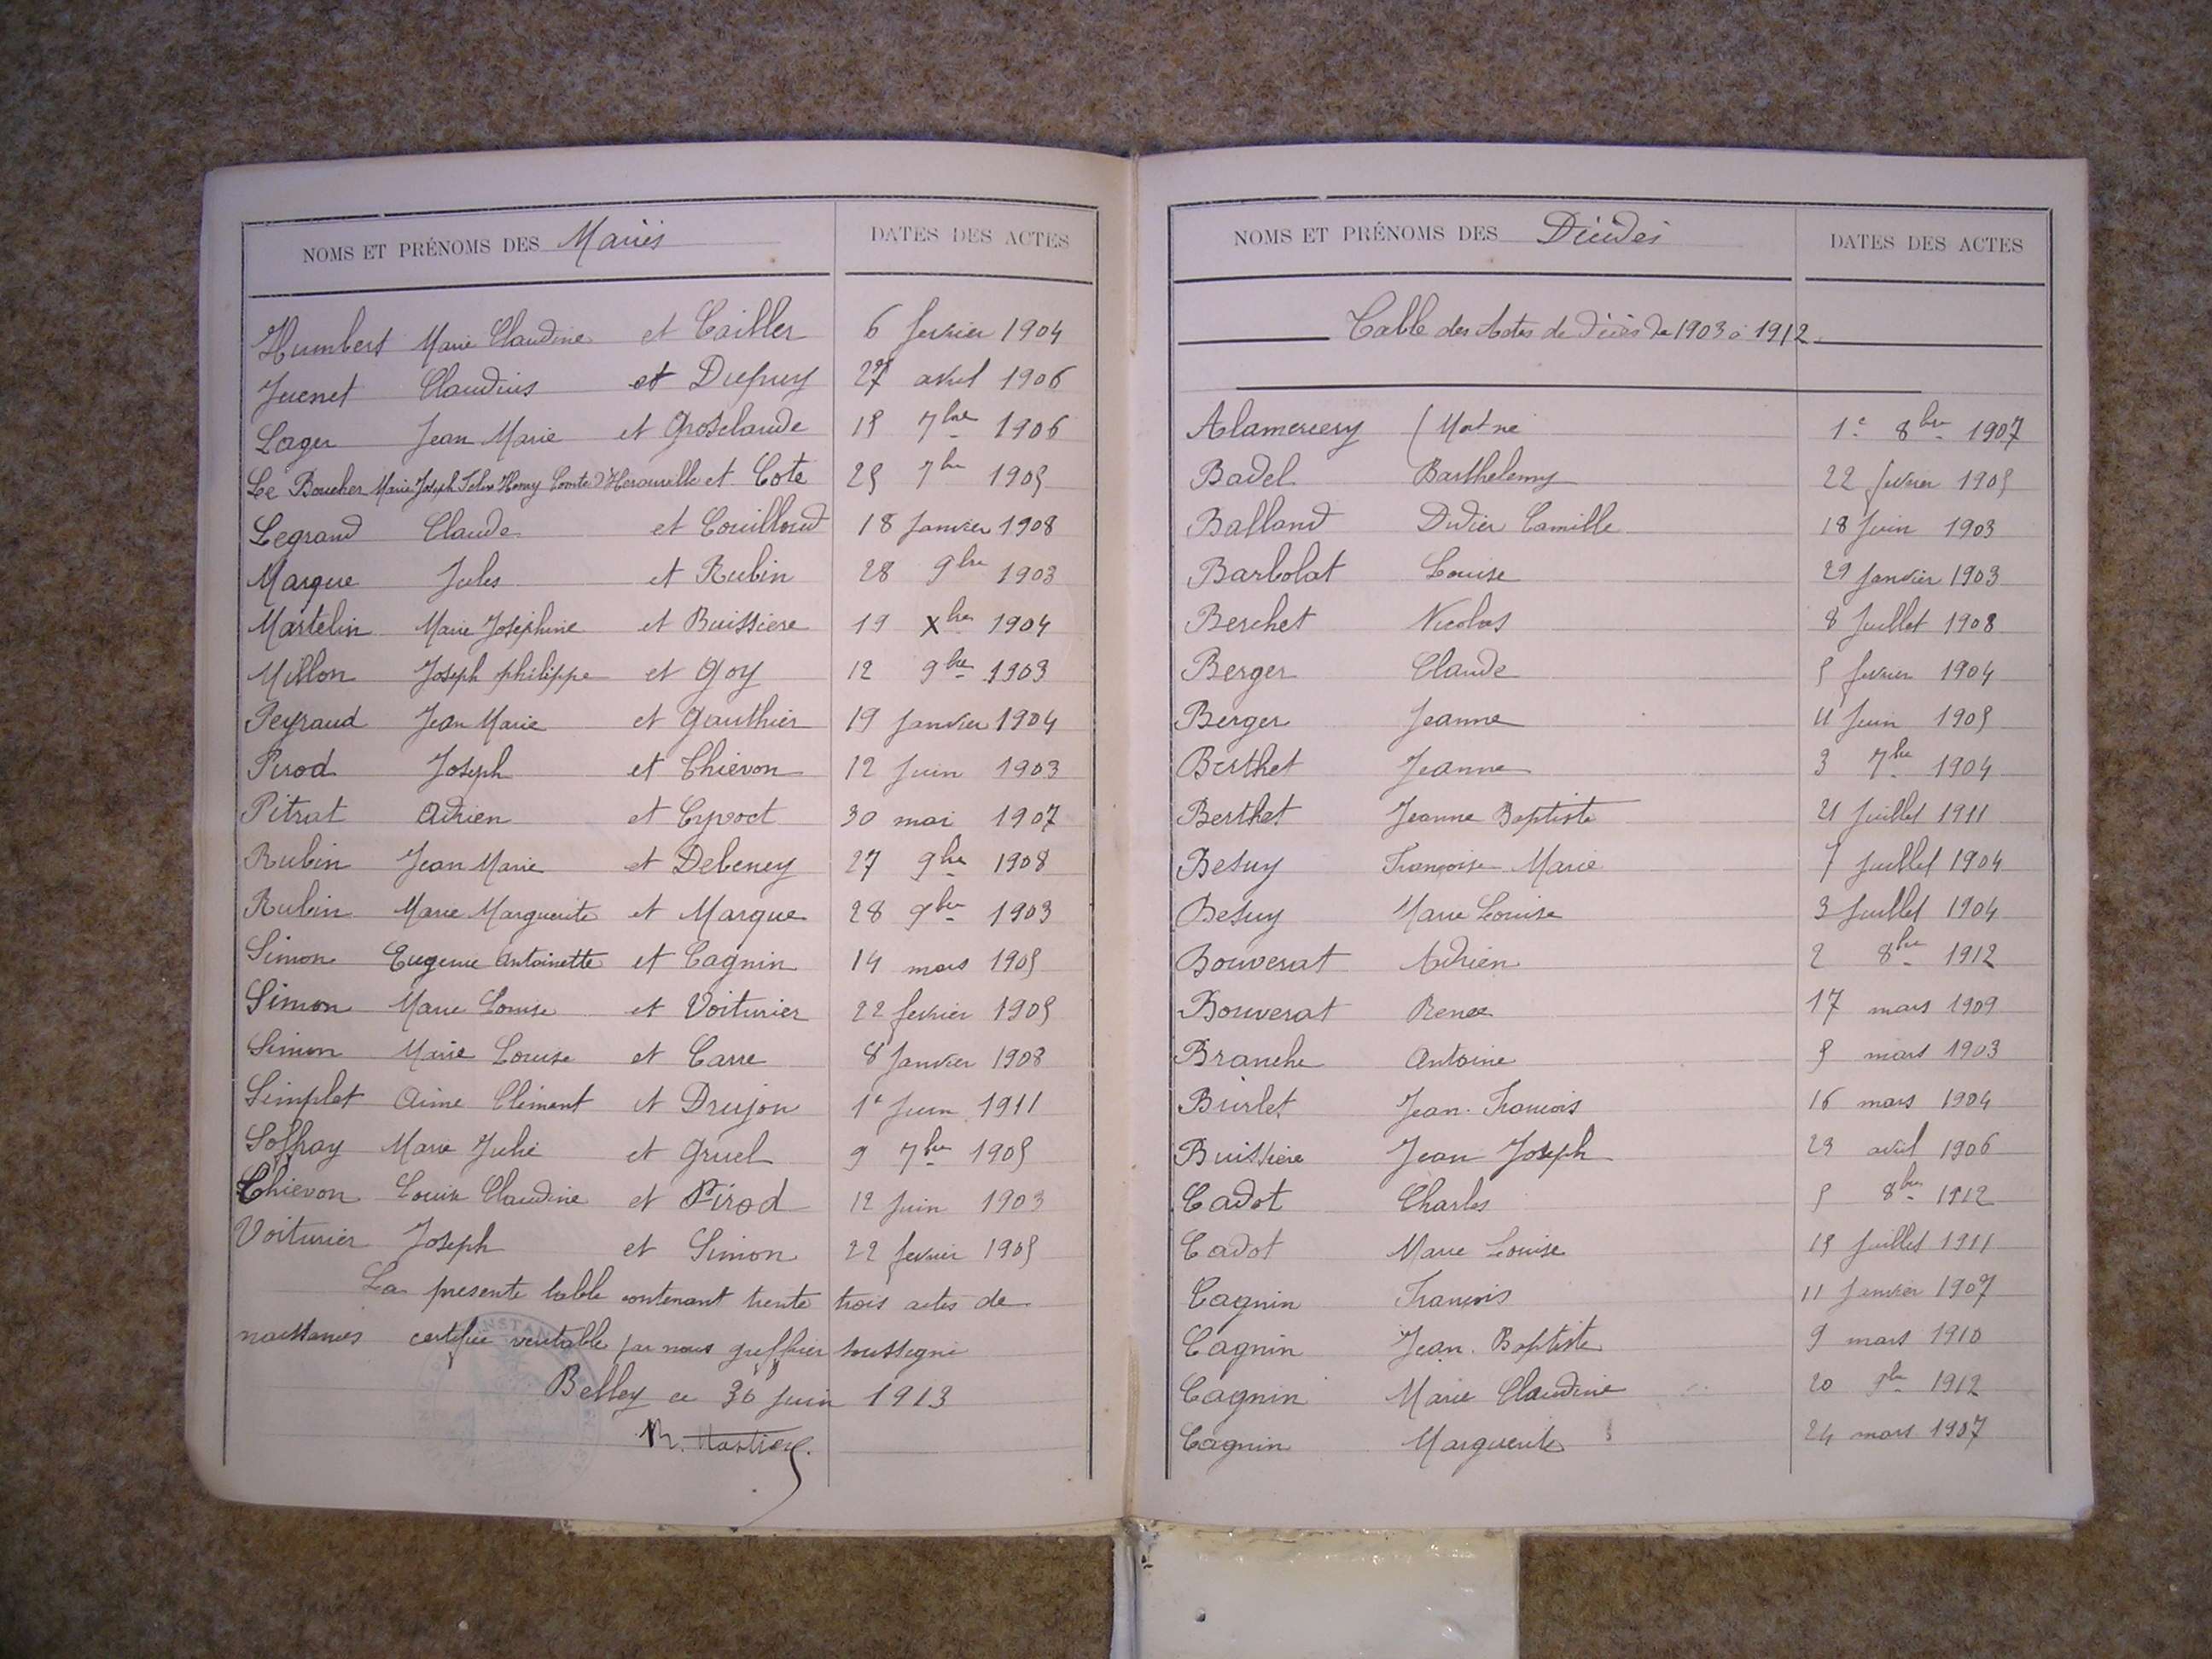 NOMS ET PRÉNOMS DES Mariés DATES DES ACTES
Humbert Marie Claudine et Cailler 6 fevrier 1904
Juenet Claudius et Dupuy 27 avril 1906
Lager Jean Marie et Grosclaude 15 7bre 1906
Le Boucher Marie Joseph Felix Henry Comte d'Herouville et Cote 25 7bre 1905
Legrand Claude et Couilloud 18 Janvier 1908
Margue Jules et Rubin 28 9bre 1903
Martelin Marie Joséphine et Buissiere 19 Xbre 1904
Millon Joseph philippe et Goy 12 9bre 1903
Peyraud Jean Marie et Gauthier 19 Janvier 1904
Pirod Joseph et Thiévon 12 Juin 1903
Pitrat Adrien et 30 mai 1907
Rubin Jean Marie et Debeney 27 9bre 1908
Rubin Marie Marguerite et Margue 28 9bre 1903
Simon Eugenie Antoinette et Cagnin 14 mars 1905
Simon Marie Louise et Voiturier 22 fevrier 1905
Simon Marie Louise et Carre 8 Janvier 1908
Simplet Aimé Clément et Drujon 1e Juin 1911
Soffray Marie Julie et Gruel 9 7bre 1905
Thiévon Louise Claudine et Pirod 12 Juin 1903
Voiturier Joseph et Simon 22 fevrier 1905
La presente table contenant trente trois actes de
naissances certifiée veritable par nous greffier soussigné
Belley ce 30 Juin 1913
NOMS ET PRÉNOMS DES Décédés DATES DES ACTES
Table des Actes de Décès de 1903 à 1912
Alamercery Mort né 1e 8bre 1907
Badel Barthelemy 22 fevrier 1905
Balland Didier Camille 18 Juin 1903
Barbolat Louise 29 Janvier 1903
Berchet Nicolas 8 Juillet 1908
Berger Claude 5 fevrier 1904
Berger Jeanne 11 Juin 1905
Berthet Jeanne 3 7bre 1904
Berthet Jeanne Baptiste 21 Juillet 1911
Besuy Françoise Marie 7 Juillet 1904
Besuy Marie Louise 3 Juillet 1904
Bouverat Adrien 2 8bre 1912
Bouverat Renee 17 mars 1909
Branche Antoine 5 mars 1903
Burlet Jean François 16 mars 1904
Buissiere Jean Joseph 23 avril 1906
Cadot Charles 5 8bre 1912
Cadot Marie Louise 15 Juillet 1911
Cagnin François 11 Janvier 1907
Cagnin Jean Baptiste 9 mars 1910
Cagnin Marie Claudine 20 9bre 1912
Cagnin Marguerite 24 mars 1907